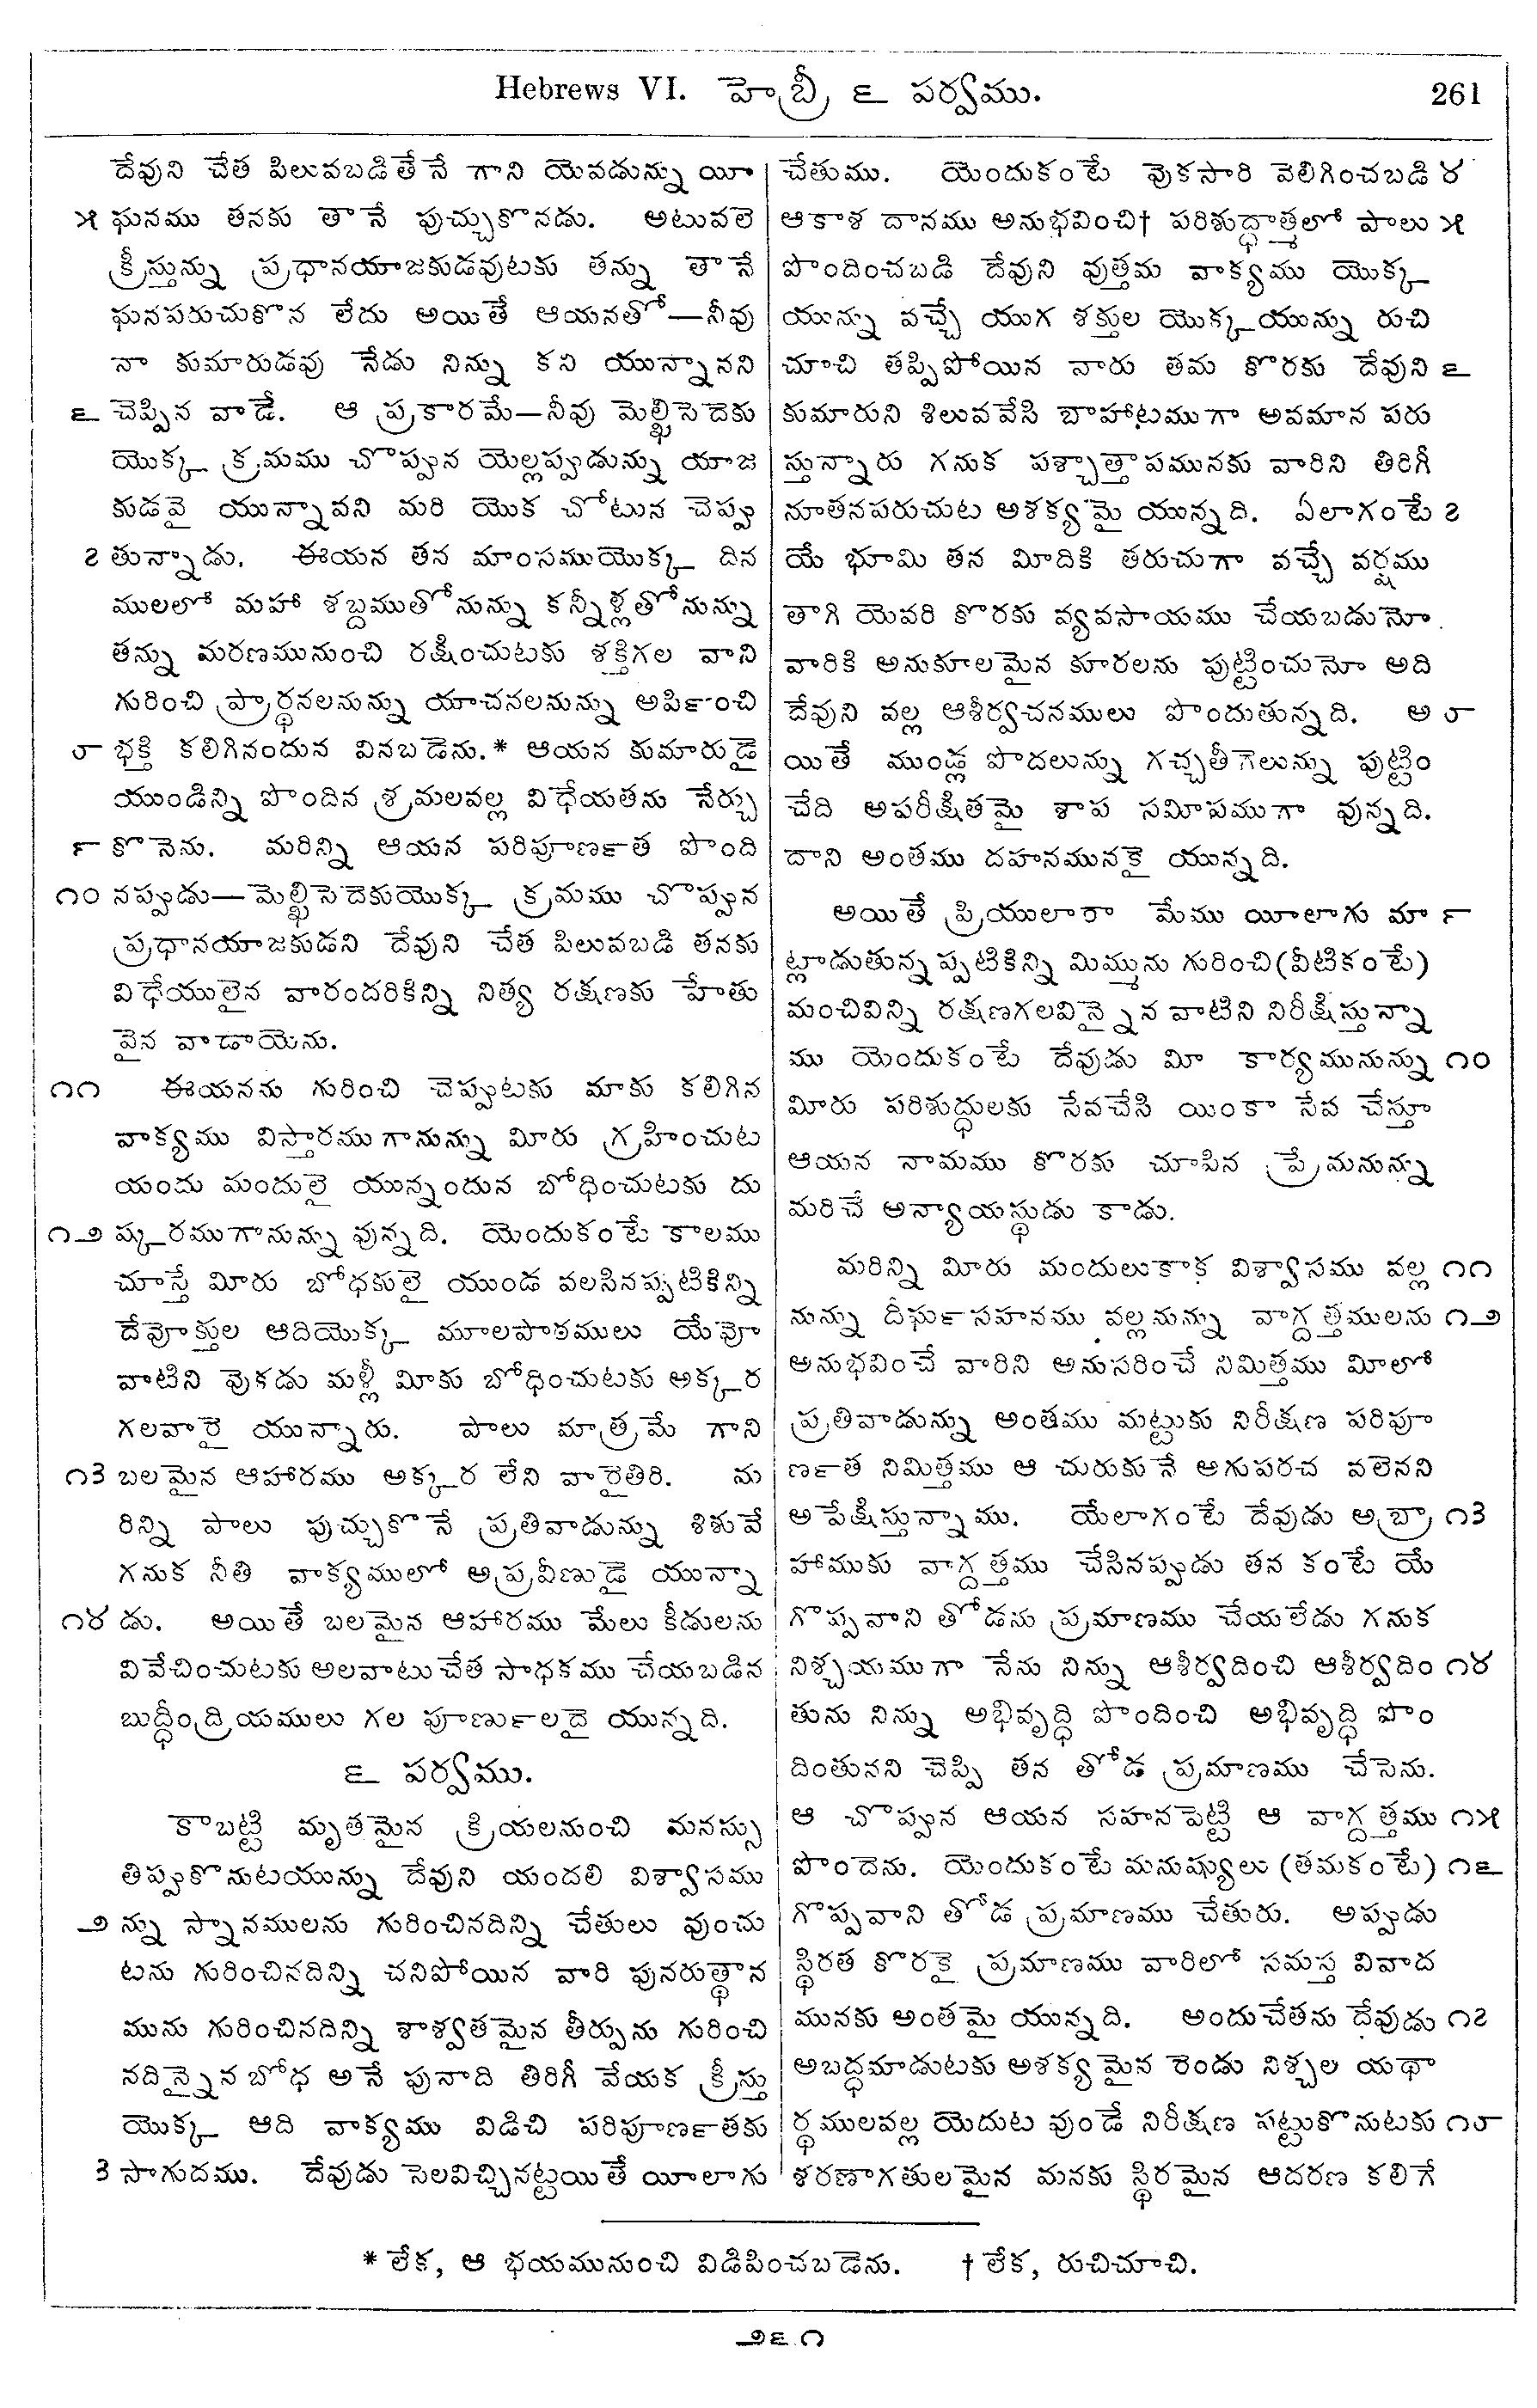 Hebrews VI. హెబ్రీ ౬ పర్వము. 261
దేవుని చేత పిలువబడితేనే గాని యెవడున్ను యీ
౫ ఘనము తనకు తానే పుచ్చుకొనడు. అటువలె
క్రీస్తున్ను ప్రధానయాజకుడవుటకు తన్ను తానే
ఘనపరుచుకొన లేదు అయితే ఆయనతో—నీవు
నా కుమారుడవు నేడు నిన్ను కని యున్నానని
౬ చెప్పిన వాడే. ఆ ప్రకారమే—నీవు మెల్ఖిసెదెకు
యొక్క క్రమము చొప్పున యెల్లప్పుడున్ను యాజ
కుడవై యున్నావని మరి యొక చోటున చెప్పు
౭ తున్నాడు. ఈయన తన మాంసముయొక్క దిన
ములలో మహా శబ్దముతోనున్ను కన్నీళ్లతోనున్ను
తన్ను మరణమునుంచి రక్షించుటకు శక్తిగల వాని
గురించి ప్రార్థనలనున్ను యాచనలనున్ను అర్పించి
౮ భక్తి కలిగినందున వినబడెను.* ఆయన కుమారుడై
యుండిన్ని పొందిన శ్రమలవల్ల విధేయతను నేర్చు
౯ కొనెను. మరిన్ని ఆయన పరిపూర్ణత పొంది
౧౦ నప్పుడు—మెల్ఖిసెదెకుయొక్క క్రమము చొప్పున
ప్రధానయాజకుడని దేవుని చేత పిలువబడి తనకు
విధేయులైన వారందరికిన్ని నిత్య రక్షణకు హేతు
వైన వాడాయెను.
౧౧ ఈయనను గురించి చెప్పుటకు మాకు కలిగిన
వాక్యము విస్తారముగానున్ను మీరు గ్రహించుట
యందు మందులై యున్నందున బోధించుటకు దు
౧౨ ష్కరముగానున్ను వున్నది. యెందుకంటే కాలము
చూస్తే మీరు బోధకులై యుండ వలసినప్పటికిన్ని
దేవోక్తుల ఆదియొక్క మూలపాఠములు యేవో
వాటిని వొకడు మళ్లీ మీకు బోధించుటకు అక్కర
గలవారై యున్నారు. పాలు మాత్రమే గాని
౧౩ బలమైన ఆహారము అక్కర లేని వారైతిరి. మ
రిన్ని పాలు పుచ్చుకొనే ప్రతివాడున్ను శిశువే
గనుక నీతి వాక్యములో అప్రవీణుడై యున్నా
౧౪ డు. అయితే బలమైన ఆహారము మేలు కీడులను
వివేచించుటకు అలవాటుచేత సాధకము చేయబడిన
బుద్ధీంద్రియములు గల పూర్ణులదై యున్నది.
౬ పర్వము.
కాబట్టి మృతమైన క్రియలనుంచి మనస్సు
తిప్పుకొనుటయున్ను దేవుని యందలి విశ్వాసము
౨ న్ను స్నానములను గురించినదిన్ని చేతులు వుంచు
టను గురించినదిన్ని చనిపోయిన వారి పునరుత్థాన
మును గురించినదిన్ని శాశ్వతమైన తీర్పును గురించి
నదిన్నైన బోధ అనే పునాది తిరిగీ వేయక క్రీస్తు
యొక్క ఆది వాక్యము విడిచి పరిపూర్ణతకు
౩ సాగుదము. దేవుడు సెలవిచ్చినట్టయితే యీలాగు
చేతుము. యెందుకంటే వొకసారి వెలిగించబడి ౪
ఆకాశ దానము అనుభవించి† పరిశుద్ధాత్మలో పాలు ౫
పొందించబడి దేవుని వుత్తమ వాక్యము యొక్క
యున్ను వచ్చే యుగ శక్తుల యొక్కయున్ను రుచి
చూచి తప్పిపోయిన వారు తమ కొరకు దేవుని ౬
కుమారుని శిలువవేసి బాహాటముగా అవమాన పరు
స్తున్నారు గనుక పశ్చాత్తాపమునకు వారిని తిరిగీ
నూతనపరుచుట అశక్యమై యున్నది. ఏలాగంటే ౭
యే భూమి తన మీదికి తరుచుగా వచ్చే వర్షము
తాగి యెవరి కొరకు వ్యవసాయము చేయబడునో
వారికి అనుకూలమైన కూరలను పుట్టించునో అది
దేవుని వల్ల ఆశీర్వచనములు పొందుతున్నది. అ ౮
యితే ముండ్ల పొదలున్ను గచ్చతీగెలున్ను పుట్టిం
చేది అపరీక్షితమై శాప సమీపముగా వున్నది.
దాని అంతము దహనమునకై యున్నది.
అయితే ప్రియులారా మేము యీలాగు మా ౯
ట్లాడుతున్నప్పటికిన్ని మిమ్మును గురించి(వీటికంటే)
మంచివిన్ని రక్షణగలవిన్నైన వాటిని నిరీక్షిస్తున్నా
ము యెందుకంటే దేవుడు మీ కార్యమునున్ను ౧౦
మీరు పరిశుద్ధులకు సేవచేసి యింకా సేవ చేస్తూ
ఆయన నామము కొరకు చూపిన ప్రేమనున్ను
మరిచే అన్యాయస్థుడు కాడు.
మరిన్ని మీరు మందులుకాక విశ్వాసము వల్ల ౧౧
నున్ను దీర్ఘసహనము వల్లనున్ను వాగ్దత్తములను ౧౨
అనుభవించే వారిని అనుసరించే నిమిత్తము మీలో
ప్రతివాడున్ను అంతము మట్టుకు నిరీక్షణ పరిపూ
ర్ణత నిమిత్తము ఆ చురుకునే అగుపరచ వలెనని
అపేక్షిస్తున్నాము. యేలాగంటే దేవుడు అబ్రా ౧౩
హాముకు వాగ్దత్తము చేసినప్పుడు తన కంటే యే
గొప్పవాని తోడను ప్రమాణము చేయలేడు గనుక
నిశ్చయముగా నేను నిన్ను ఆశీర్వదించి ఆశీర్వదిం ౧౪
తును నిన్ను అభివృద్ధి పొందించి అభివృద్ధి పొం
దింతునని చెప్పి తన తోడ ప్రమాణము చేసెను.
ఆ చొప్పున ఆయన సహనపెట్టి ఆ వాగ్దత్తము ౧౫
పొందెను. యెందుకంటే మనుష్యులు (తమకంటే) ౧౬
గొప్పవాని తోడ ప్రమాణము చేతురు. అప్పుడు
స్థిరత కొరకై ప్రమాణము వారిలో సమస్త వివాద
మునకు అంతమై యున్నది. అందుచేతను దేవుడు ౧౭
అబద్ధమాడుటకు అశక్యమైన రెండు నిశ్చల యథా
ర్థములవల్ల యెదుట వుండే నిరీక్షణ పట్టుకొనుటకు ౧౮
శరణాగతులమైన మనకు స్థిరమైన ఆదరణ కలిగే
* లేక, ఆ భయమునుంచి విడిపించబడెను. † లేక, రుచిచూచి.
౨౬౧